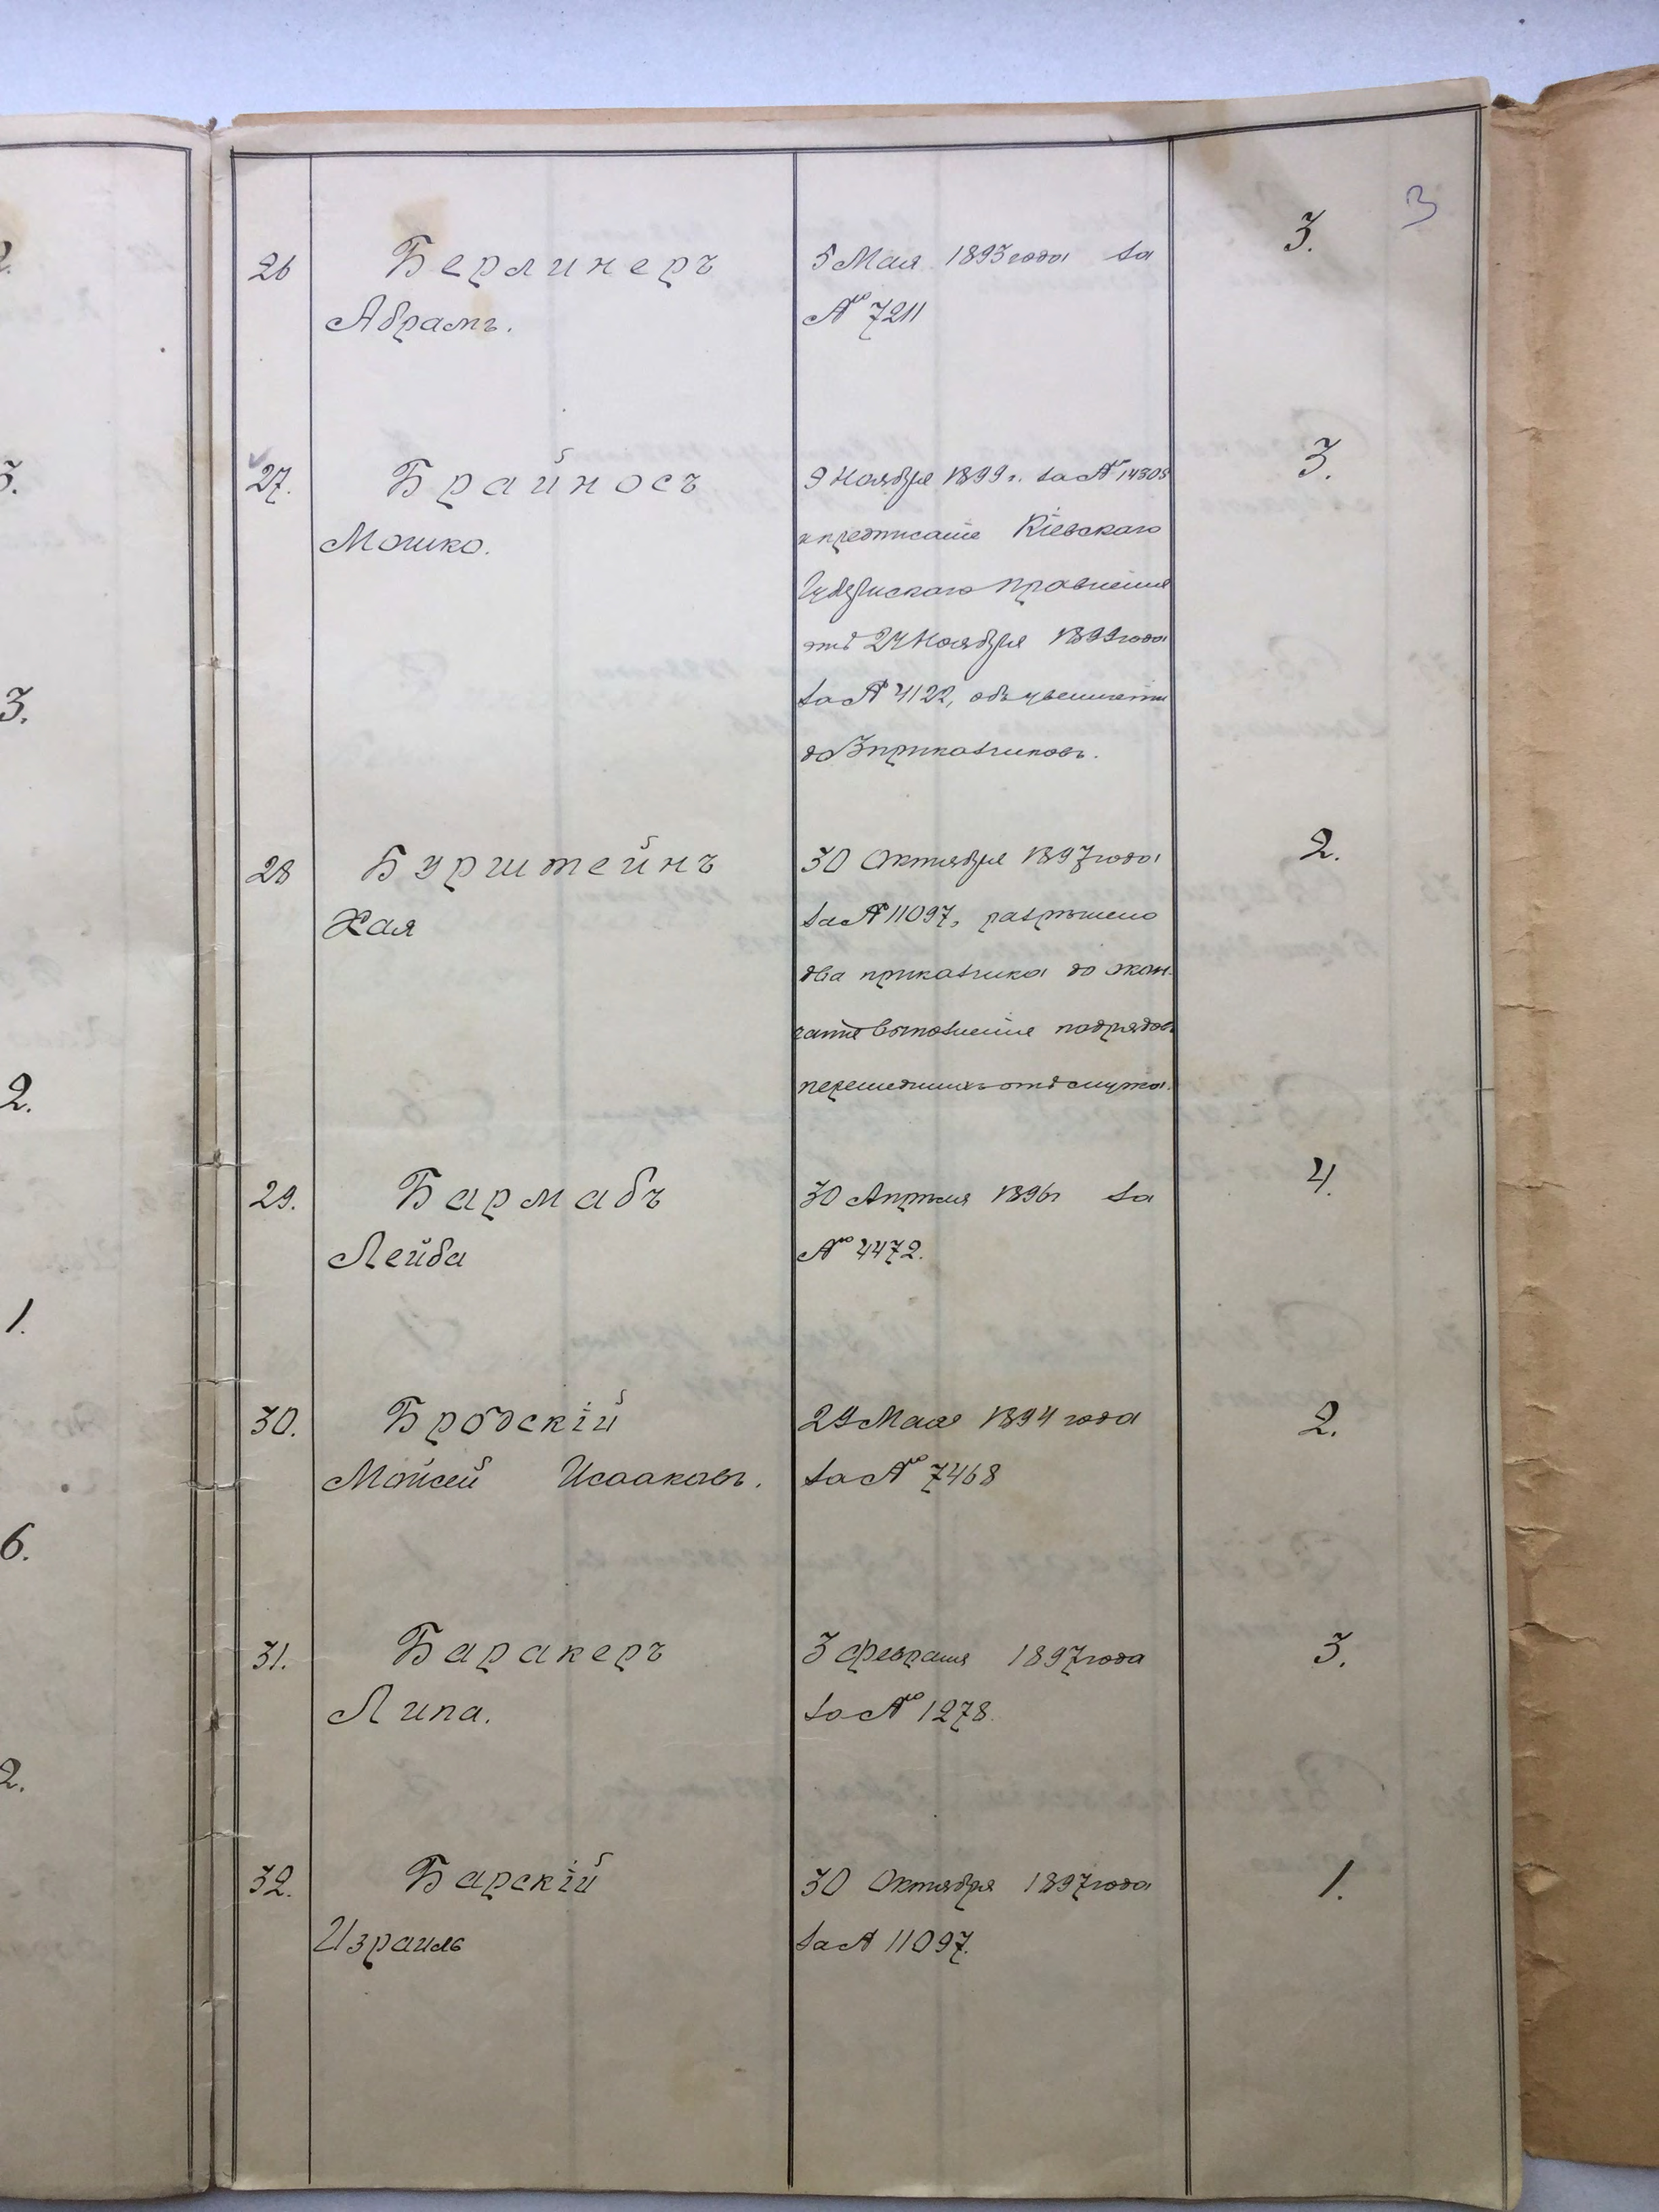 3
26 Берлинеръ 5 Мая 1893 года за 3.
Абрамъ. № 7211
27. Брайносъ 9 Ноября 1899 г. за № 14303 3.
Мошко. и предписаніе Кіевскаго
Губернскаго Правленія
отъ 24 Ноября 1899 года
за № 4122, объ увеличеніи
до 3 приказчиковъ.
28 Бурштейнъ 30 Октября 1897 года 2.
Хая за № 11097, разрѣшено
два приказчика до окон-
чанія выполненія подрядовъ
перешедшихъ отъ мужа.
29. Бармабъ 30 Апрѣля 1896 г за 4.
Лейба № 4472.
30. Бродскій 29 Мая 1894 года 2.
Мойсей Исааковъ. за № 7468
31. Баракеръ 3 Февраля 1897 года 3.
Липа. за № 1278.
32. Барскій 30 Октября 1897 года 1.
Израиль за № 11097.
3.
3.
2.
1.
6.
2.